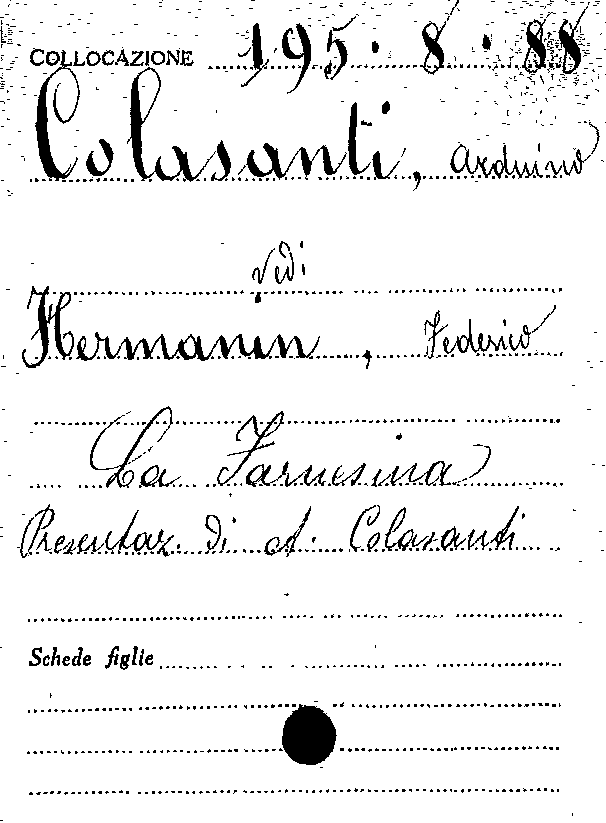 COLLOCAZIONE 195. 8. 88
Colasanti, Arduino
vedi
Hermanin, Federico
La Farnesina
Presentaz. di A. Colasanti
Schede figlie